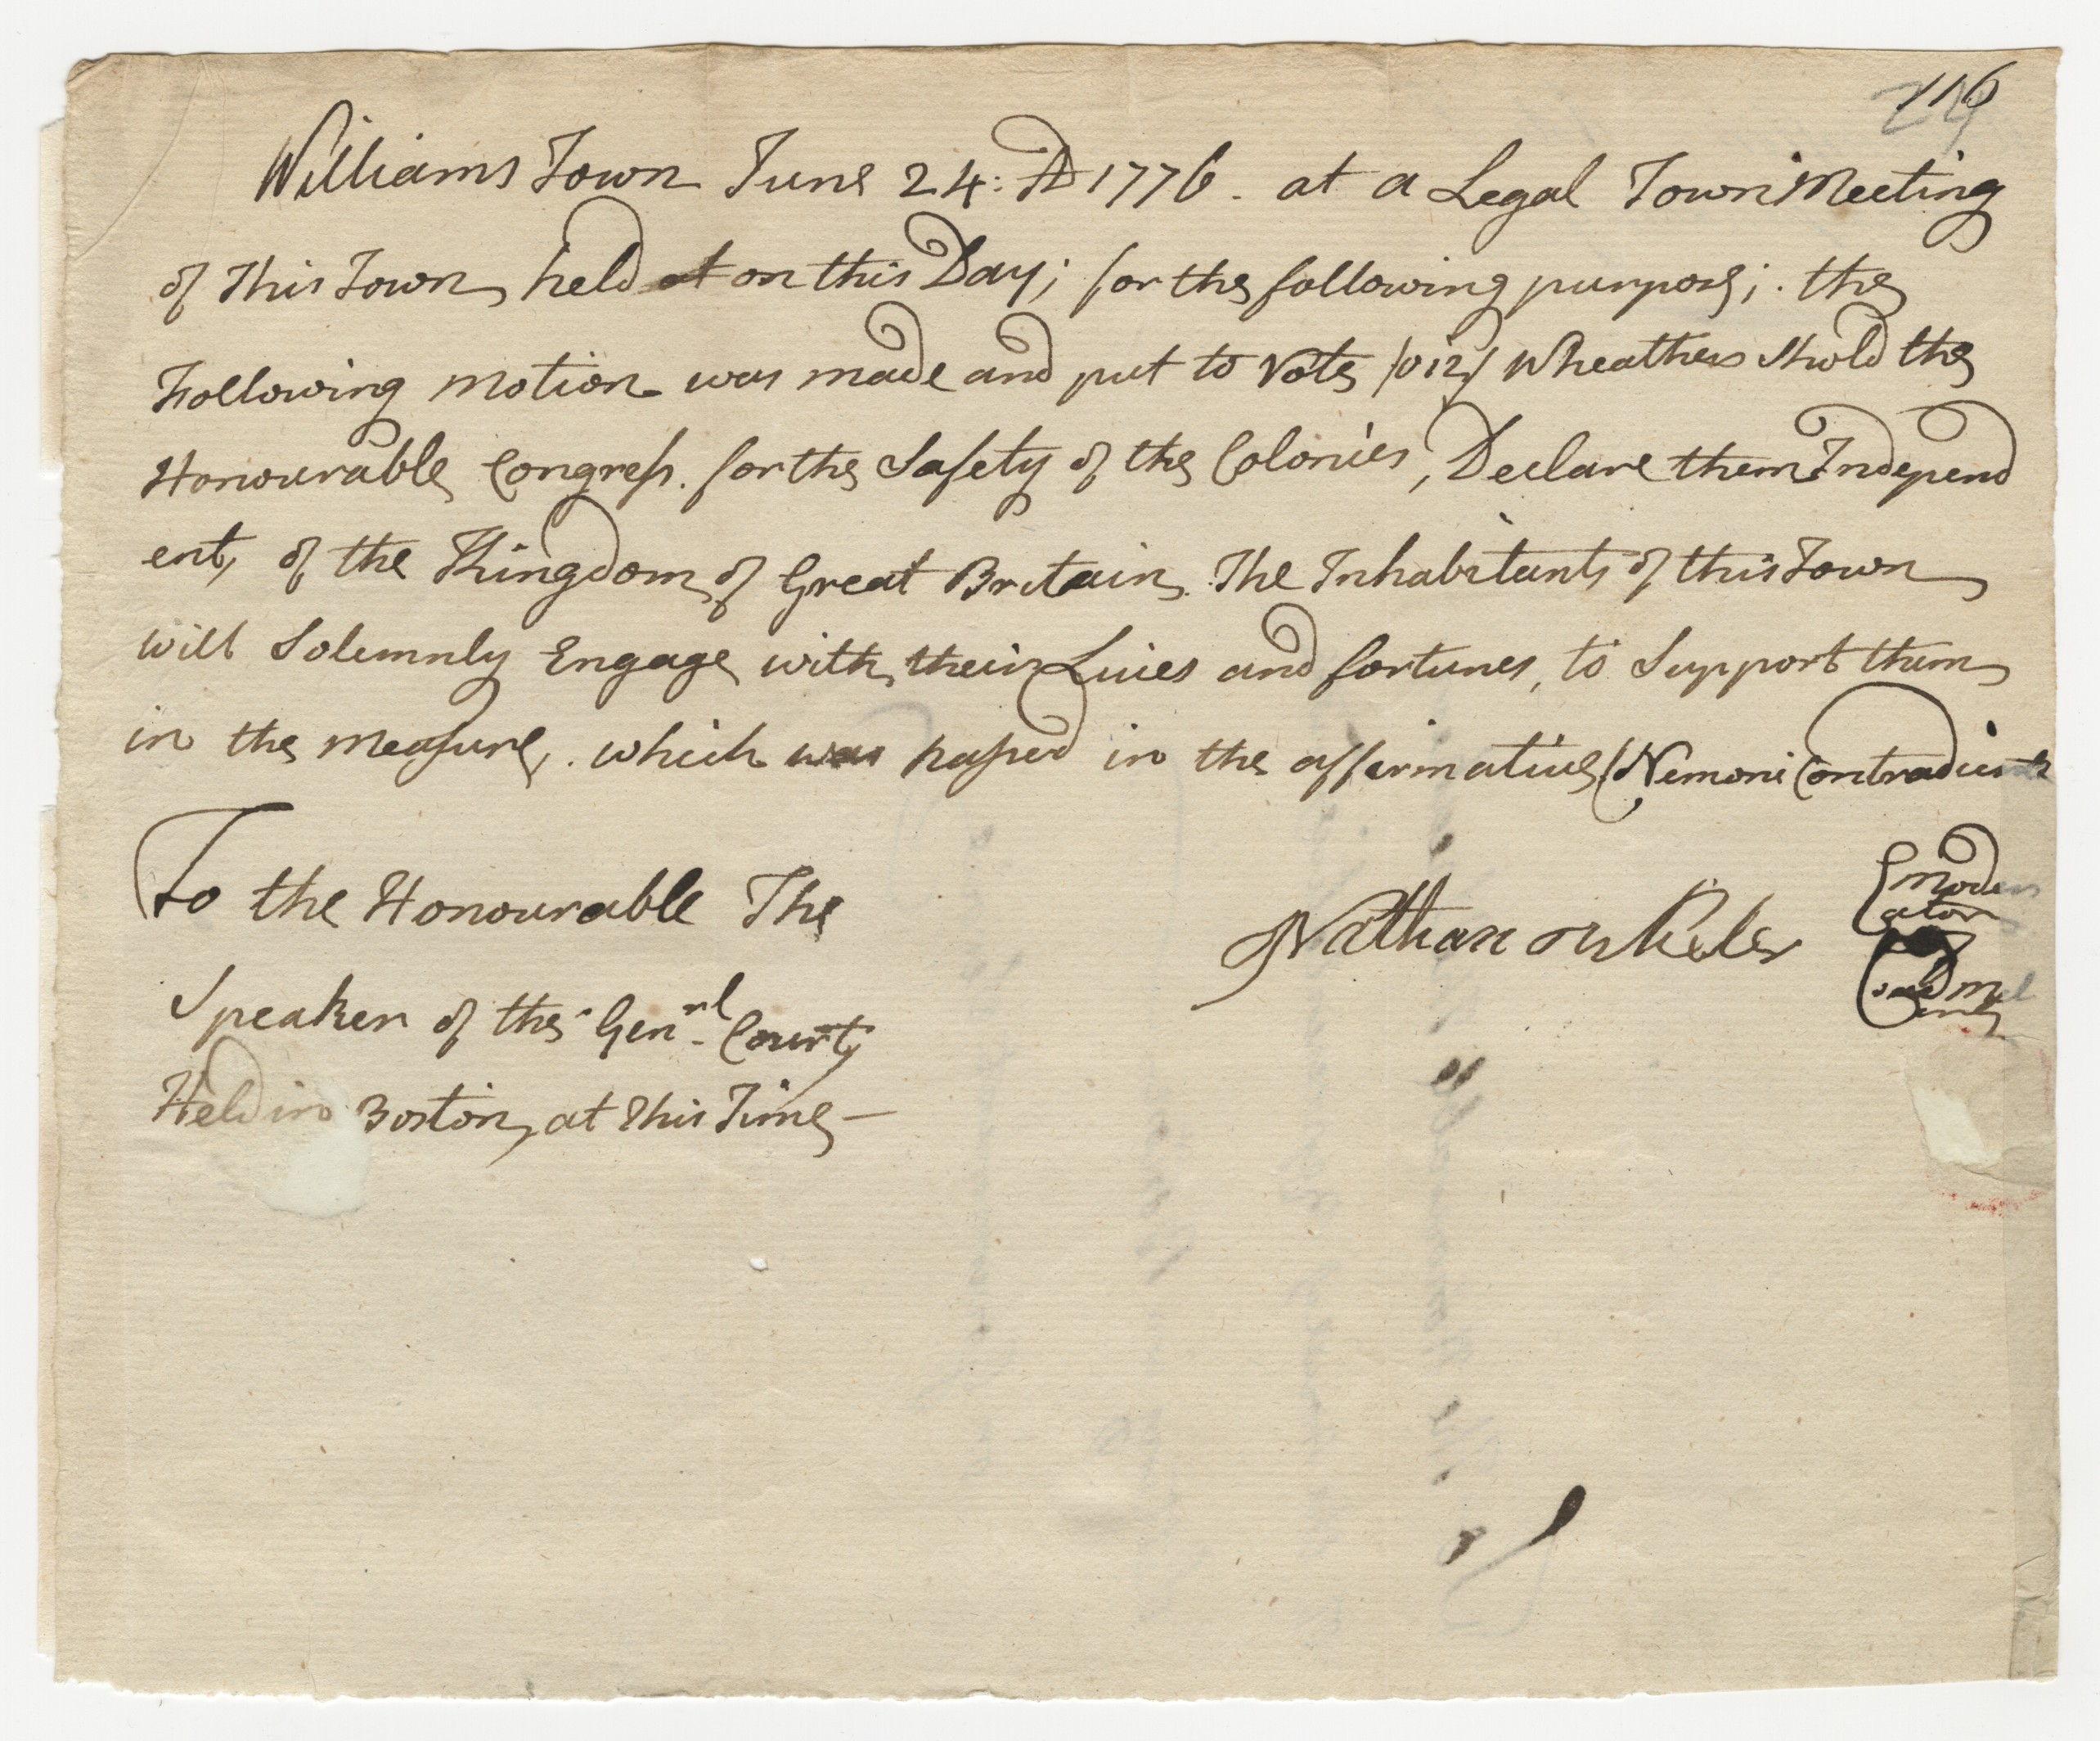 116
Williams Town June 24: AD 1776. at a Legal Town Meeting
of This Town held at on this Day; for the following purpose; the
Following motion was made and put to Vote /viz/ Wheather Shold the
Honourable Congress. for the Safety of the Colonies, Declare them Independ
ent, of the Kingdom of Great Britain. The Inhabitants of this Town
will Solemnly Engage with their Lives and fortunes, to Support them
in the Measure, which was passed in the affermative (Nemoni Contradicente
To the Honourable The
Speaker of the Genrl Court
Held in Boston, at This Time —
Nathan Wheler
Moder
ator